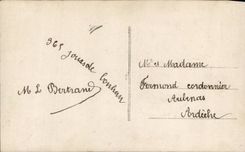 365 Jours de bonheur
M. L Bertrand
Mr et Madame
Fermond cordonnier
Aubenas
Ardèche